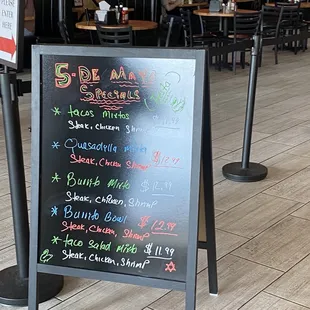 5-DE MAYO
Specials
* Tacos Mixtos
Steak, Chicken Shrimp
* Quesadilla Mixta
Steak, Chicken Shrimp
* Burrito Mixto
Steak, Chicken, Shrimp
* Burrito Bowl
Steak, Chicken, Shrimp
* taco Salad Mixto
$11.99
Steak, Chicken, Shrimp